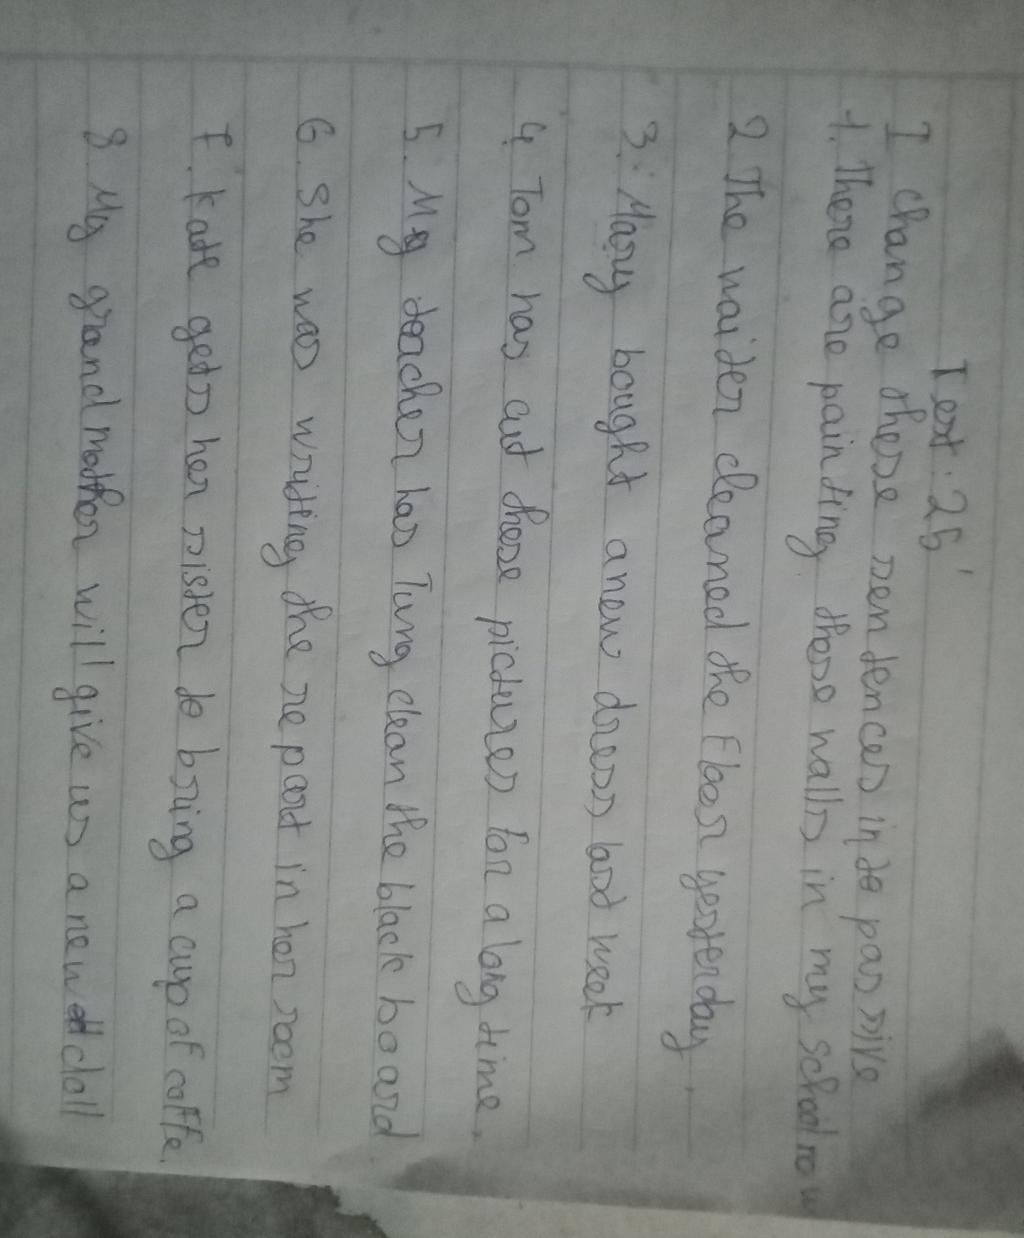 Test: 25'
I change these sentences into passive
1. There are painting these walls in my school now
2 The waiter cleaned the Floor yesterday.
3: Mary bought a new dress last week
4. Tom has cut these pictures for a long time.
5. My teacher has Tung clean the black board.
6. She was writing the report in her room
7. Kate gets her sister to bring a cup of coffe.
8. My grand mother will give us a new doll